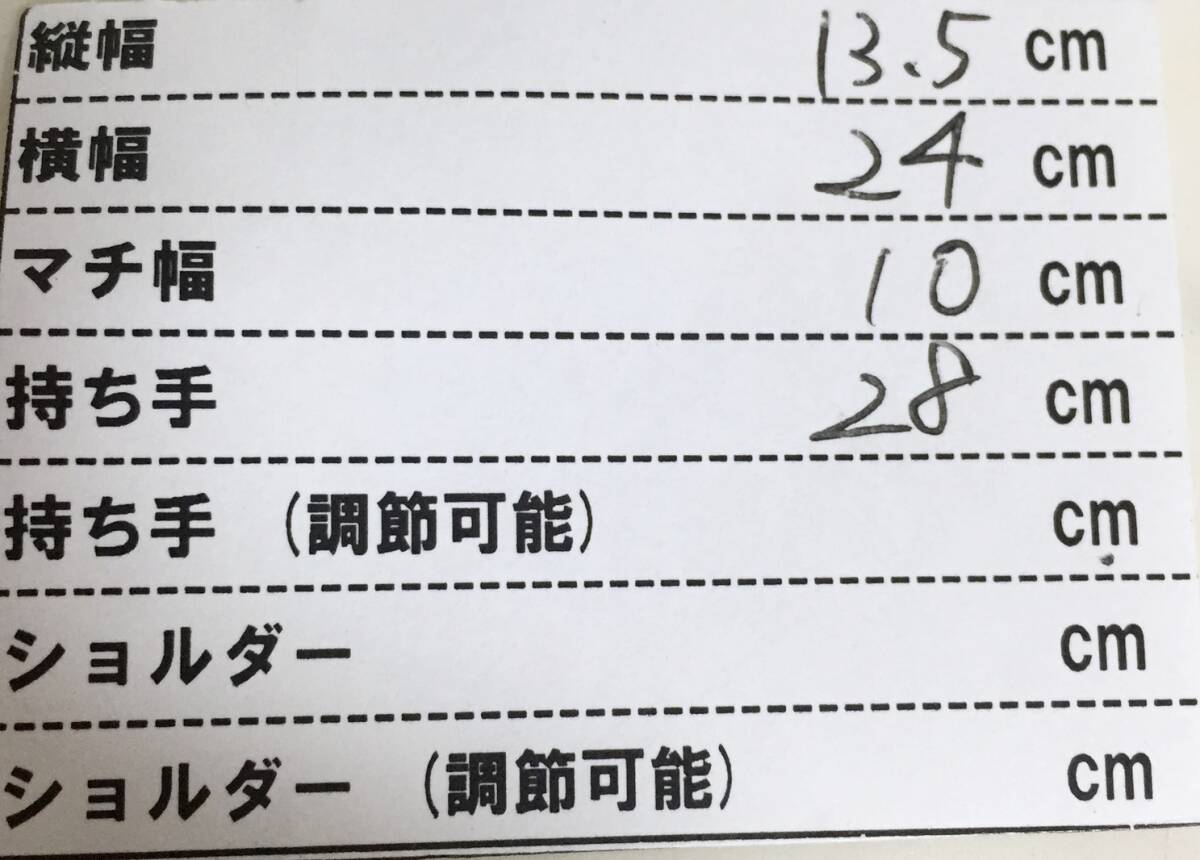 縦幅 13.5 cm
横幅 24 cm
マチ幅 10 cm
持ち手 28 cm
持ち手 (調節可能) cm
ショルダー cm
ショルダー (調節可能) cm